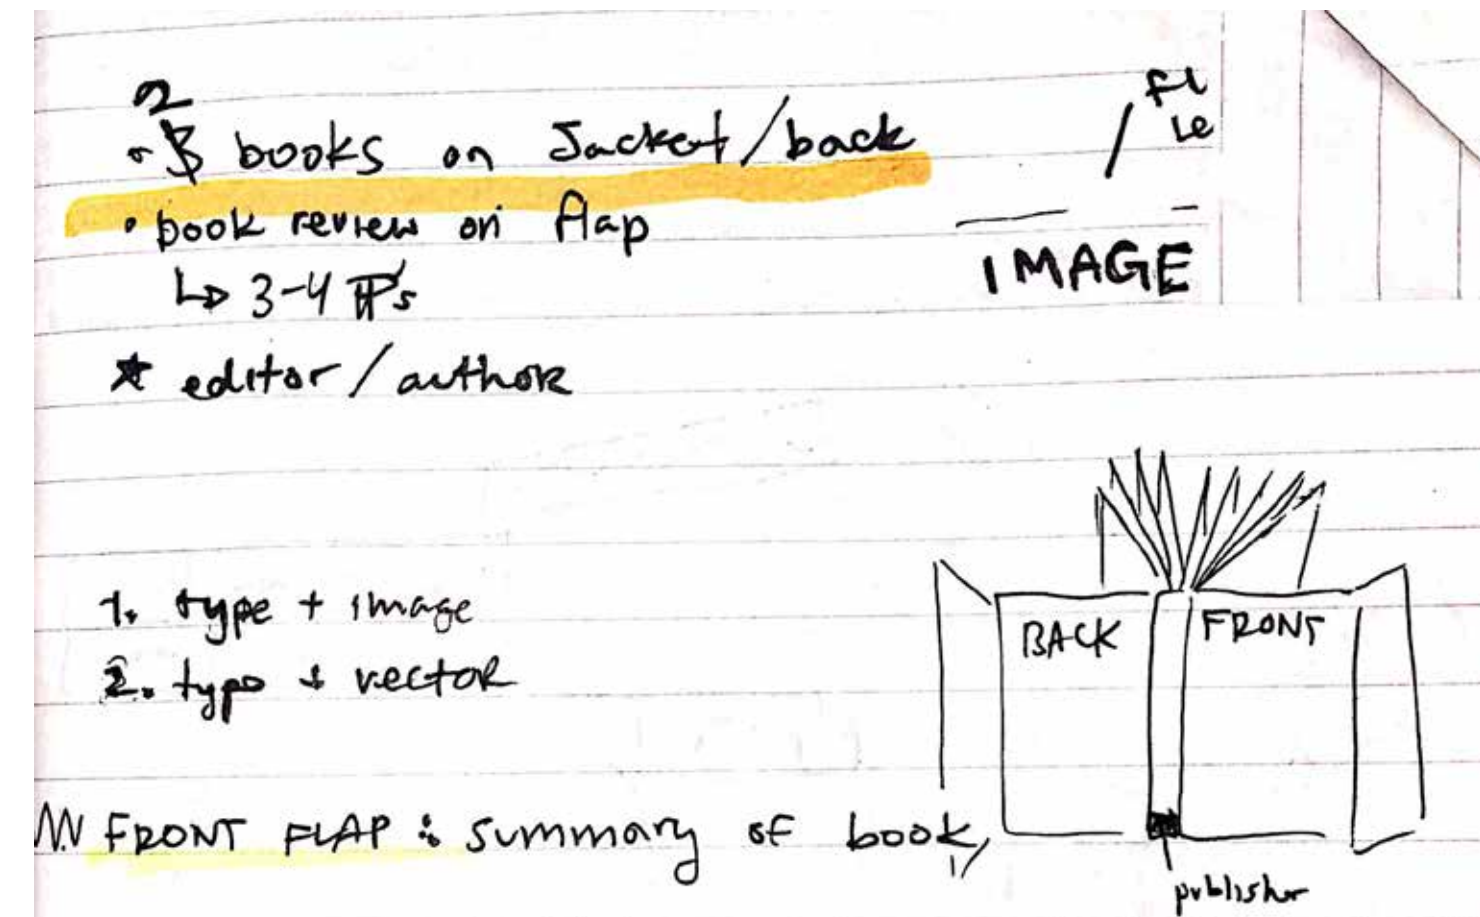 2
• books on Jacket/back
• book review on flap
↳ 3-4 ¶'s
★ editor/author
IMAGE
1. type + image
2. type + vector
BACK
FRONT
FRONT FLAP: summary of book,
publisher